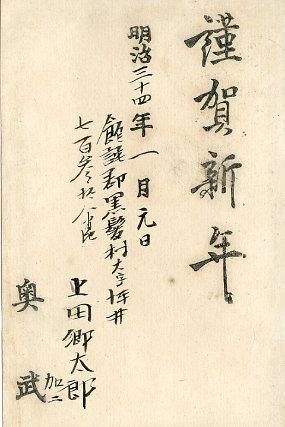 謹賀新年
明治三十四年一月元日
飽託郡黒髪村大字坪井
七百参拾八番地
上田郷太郎
加仁
奥武